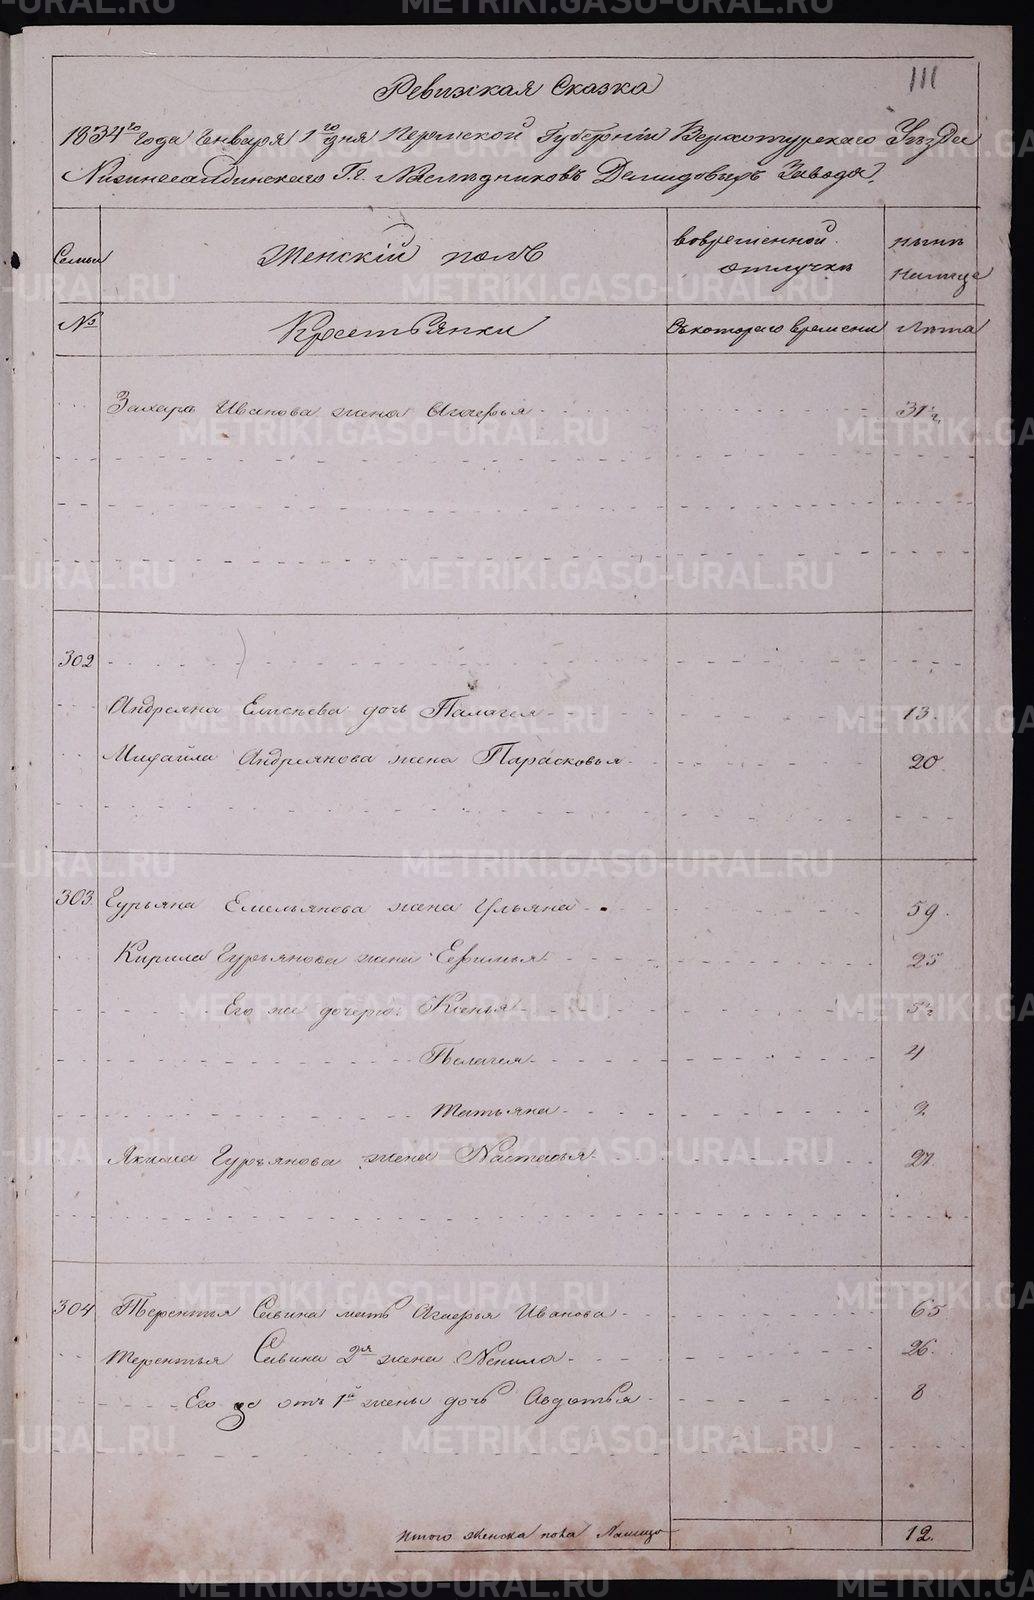 111
Ревизская Сказка
1834го года Генваря 1го дня Пермской Губернiи Верхотурскаго Уъзда
Нижнесалдинскаго Г.г. Наслъдниковъ Демидовыхъ Завода.
Семьи
Женскiй полъ
вовременной отлучкъ
нынъ налице
№
Крестьянки
Съкотораго времени
лъта
Захара Иванова жена Агаѳья 31½
302
Андреяна Елисъева дочь Палагея 13.
Михайла Андреянова жена Парасковья 20
303. Гурьяна Емельянова жена Ульяна 59.
Кирила Гурьянова жена Ефимья 25
Его же дочери: Ксенья 5½
Пелагея 4
Татьяна 2
Якима Гурьянова жена Настасья 27
304 Терентья Савина мать Агаѳья Иванова 65
Терентья Савина 2я жена Ненила 26.
Его же отъ 1й жены дочь Авдотья 8
Итого женска пола Налицо 12.
METRIKI.GASO-URAL.RU